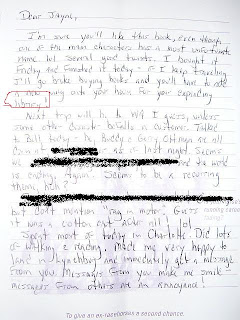 Dear Jayne,
I'm sure you'll like this book, even though
one of the main characters has a most unfortunate
name but several good traits. I bought it
Friday and finished it today - if I keep traveling
I'll go broke buying books and you'll have to add
a new out your house for your expanding
library!
Next trip will be to WA I guess, unless
some other disaster befalls a customer. Talked
to Bill today & Buddy & Gary Ottman are all
last night. Seems
we and the world
is ending. Again. Seems to be a recurring
theme, huh?
but don't mention "rag in motor." Gutz
it was a cotton end lol.
Spent most of today in Charlotte. Did lots
of walking & reading. Made me very happy to
land in Lynchburg and immediately get a message
from you. Messages from you make me smile -
messages from others are an annoyance!
To give an ex-racehorse a second chance.